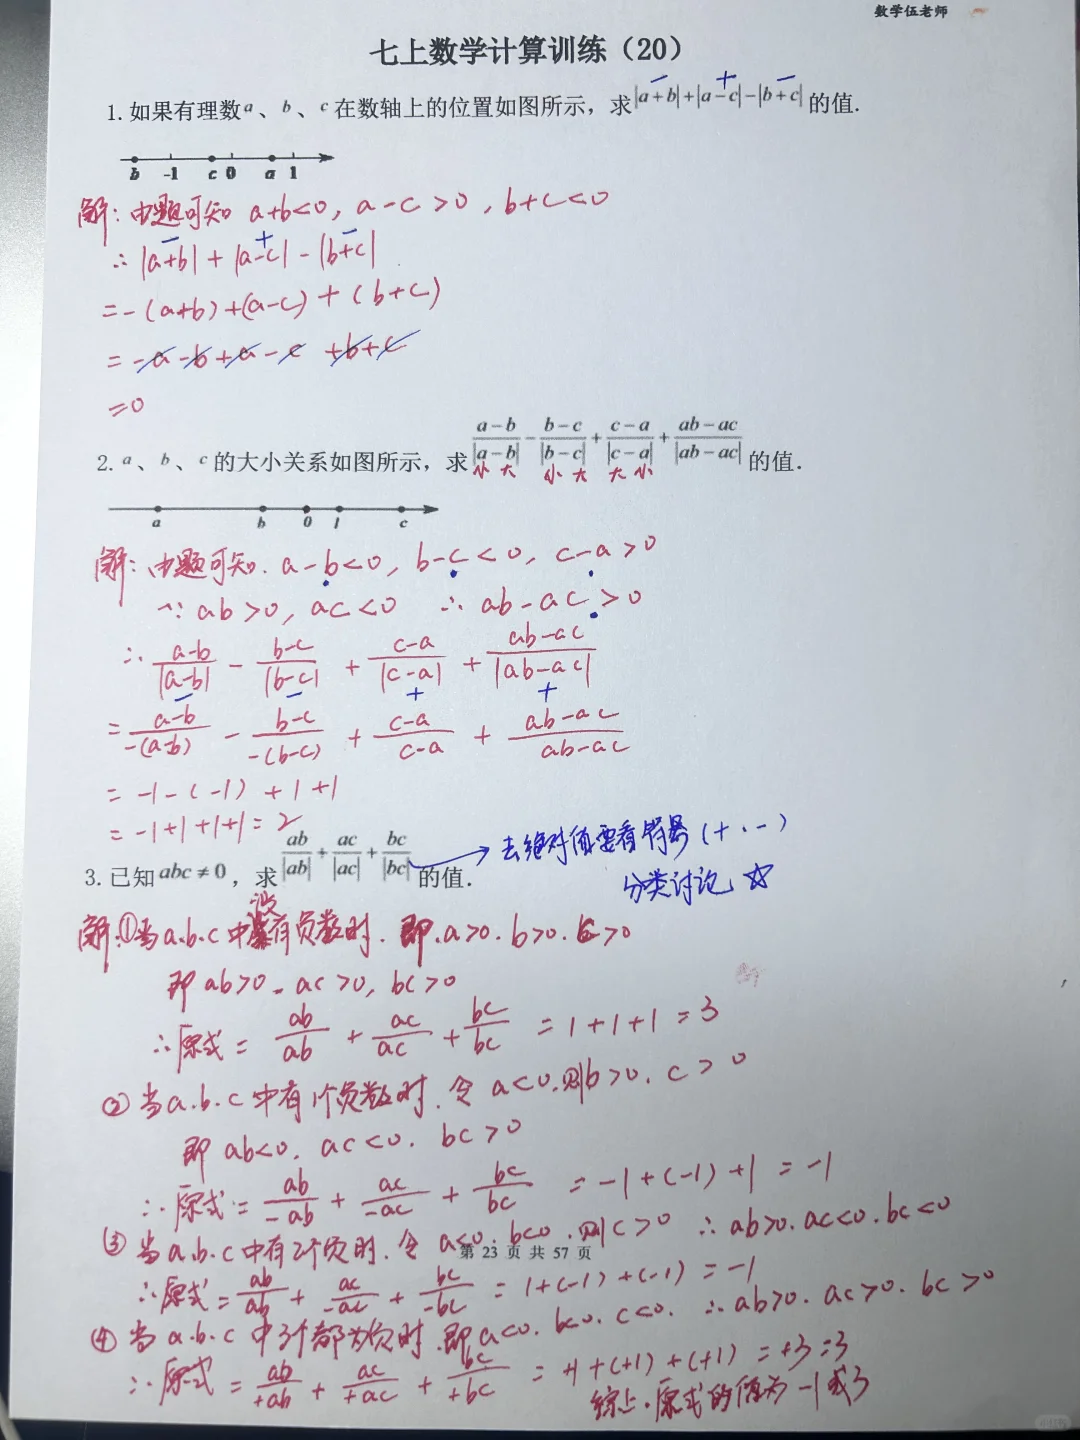 数学伍老师
七上数学计算训练（20）
1. 如果有理数 a、b、c 在数轴上的位置如图所示，求 |a+b|+|a-c|-|b+c| 的值.
− + −
b -1 c 0 a 1
解：由题可知 a+b<0, a-c>0, b+c<0
− + −
∴ |a+b| + |a-c| - |b+c|
= -(a+b)+(a-c)+(b+c)
= -a-b+a-c+b+c
=0
2. a、b、c 的大小关系如图所示，求 (a-b)/|a-b| - (b-c)/|b-c| + (c-a)/|c-a| + (ab-ac)/|ab-ac| 的值.
小 大 小 大 大 小
a b 0 1 c
解：由题可知. a-b<0, b-c<0, c-a>0
∵ ab>0, ac<0 ∴ ab-ac>0
∴ (a-b)/|a-b| - (b-c)/|b-c| + (c-a)/|c-a| + (ab-ac)/|ab-ac|
− − + +
= (a-b)/-(a-b) - (b-c)/-(b-c) + (c-a)/(c-a) + (ab-ac)/(ab-ac)
= -1-(-1)+1+1
= -1+1+1+1=2
3. 已知 abc≠0，求 ab/|ab| + ac/|ac| + bc/|bc| 的值.
→ 去绝对值要看符号(+.-)
分类讨论 ☆
解：①当a.b.c中没有负数时. 即.a>0.b>0.c>0
即 ab>0. ac>0, bc>0
∴原式 = ab/ab + ac/ac + bc/bc = 1+1+1 = 3
② 当a.b.c中有1个负数时. 令 a<0.则b>0. c>0
即 ab<0. ac<0. bc>0
∴原式 = ab/-ab + ac/-ac + bc/bc = -1+(-1)+1 = -1
③ 当a.b.c中有2个负时. 令 a<0. b<0. 则c>0 ∴ab>0.ac<0.bc<0
第 23 页 共 57 页
∴原式 = ab/ab + ac/-ac + bc/-bc = 1+(-1)+(-1) = -1
④ 当 a.b.c 中3个都为负时.即a<0. b<0. c<0. ∴ab>0. ac>0. bc>0
∴原式 = ab/+ab + ac/+ac + bc/+bc = +1+(+1)+(+1) = +3=3
综上.原式的值为-1或3
小红书